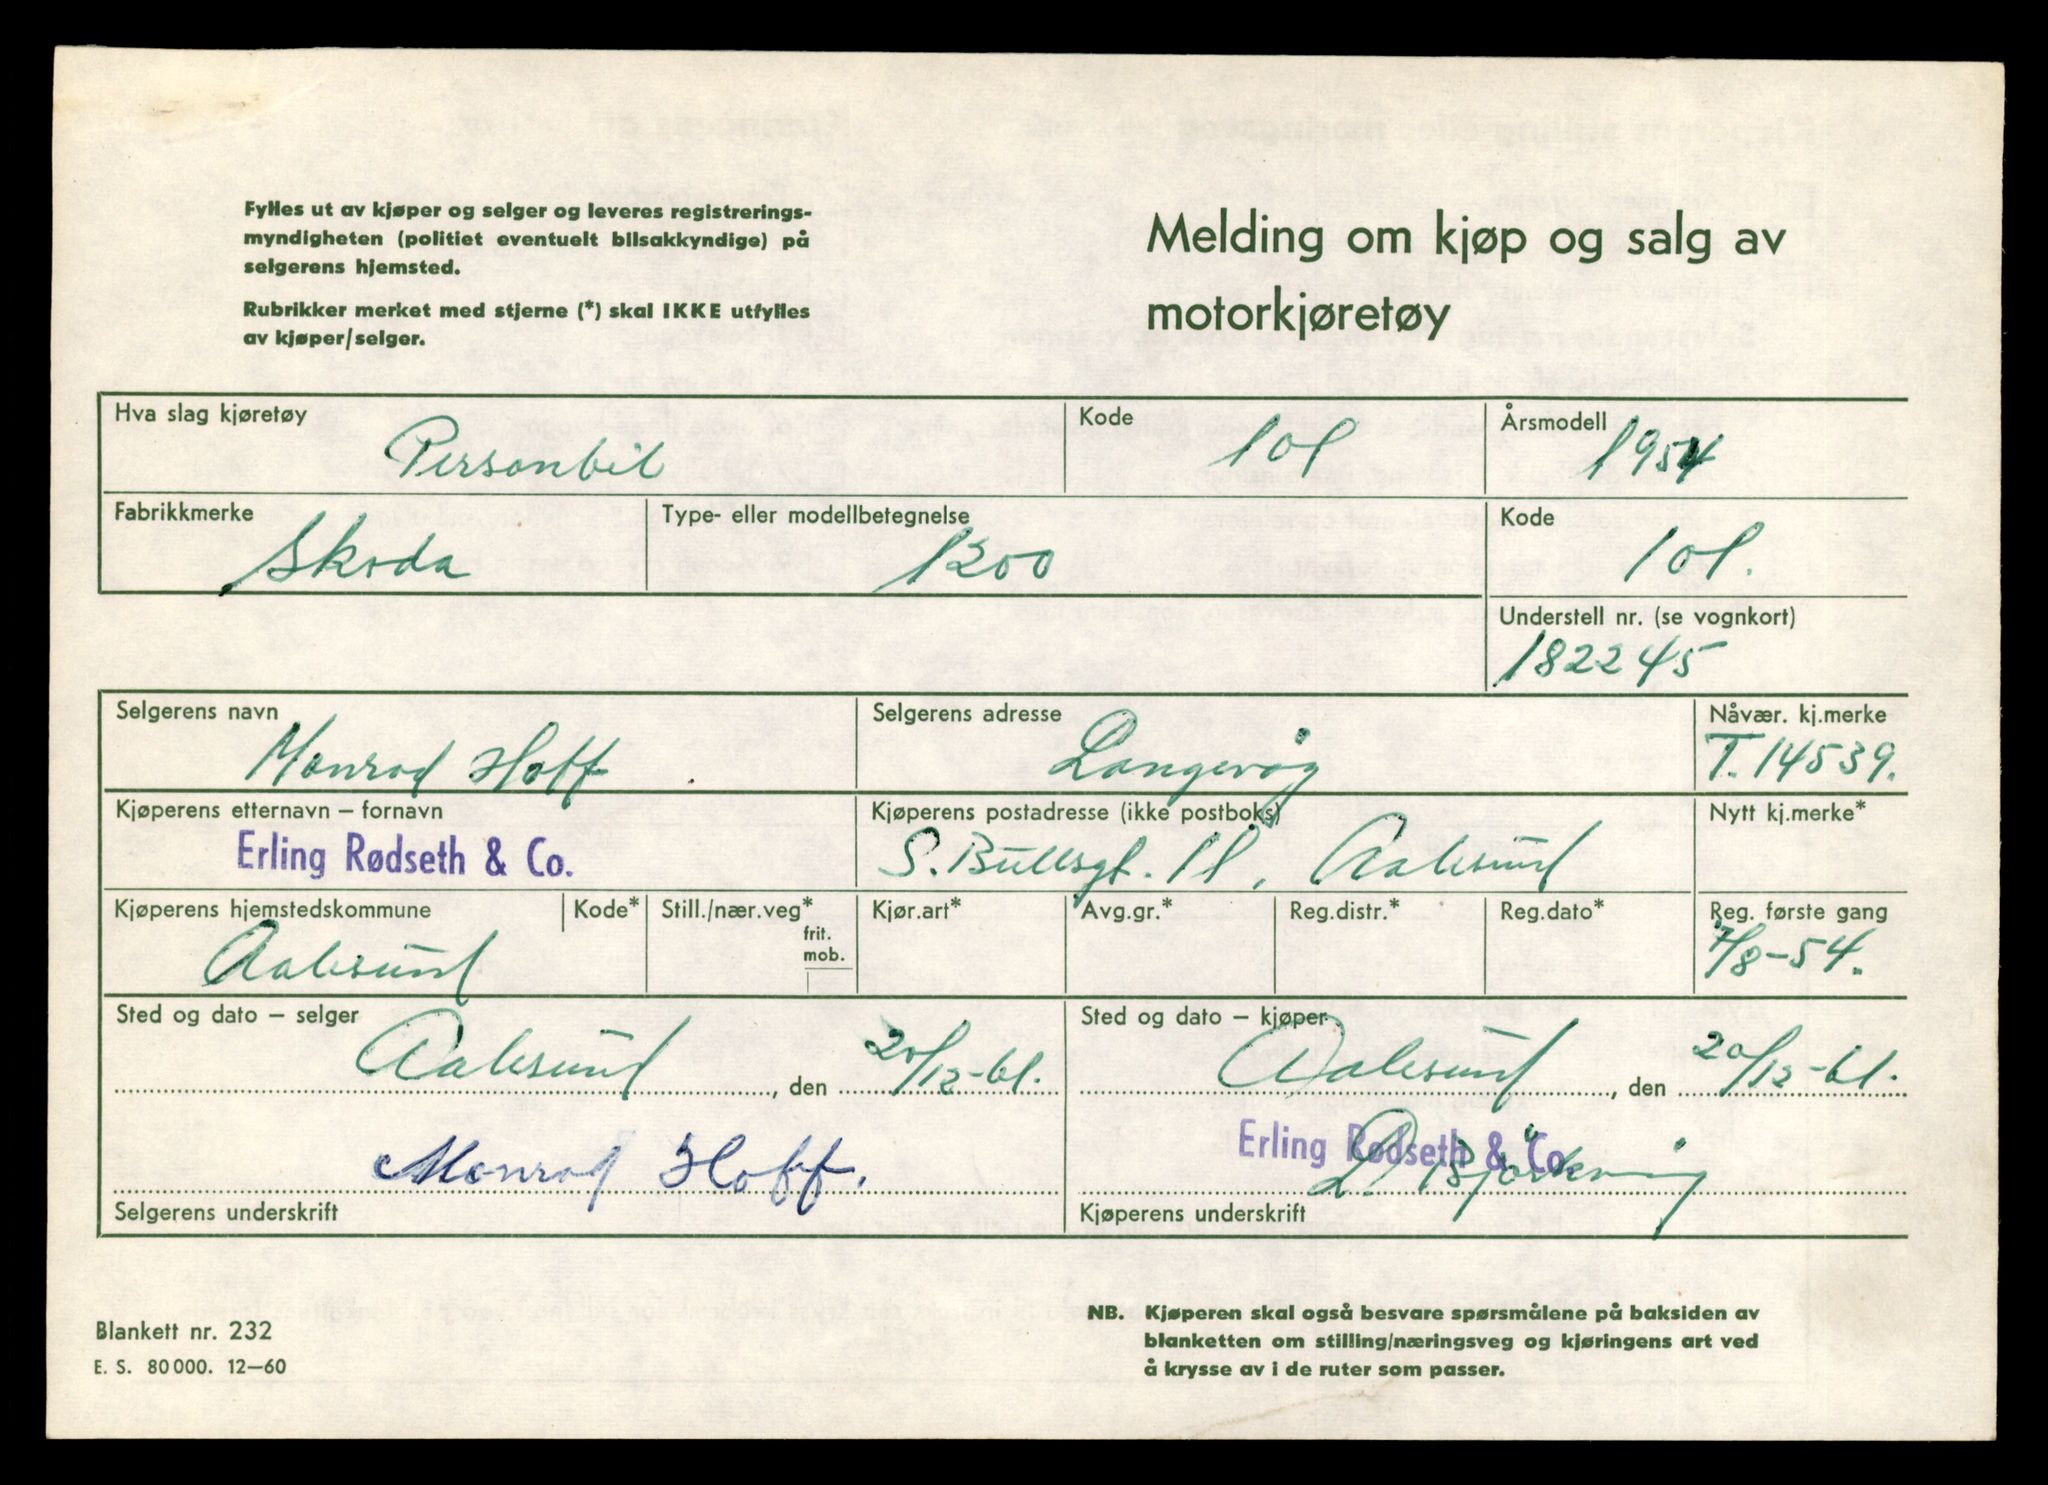 Fylles ut av kjøper og selger og leveres registrerings-
myndigheten (politiet eventuelt bilsakkyndige) på
selgerens hjemsted.
Rubrikker merket med stjerne (*) skal IKKE utfylles
av kjøper/selger.
Melding om kjøp og salg av
motorkjøretøy
Hva slag kjøretøy Kode Årsmodell
Personbil 101 1954
Fabrikkmerke Type- eller modellbetegnelse Kode
Skoda 1200 101.
Understell nr. (se vognkort)
182245
Selgerens navn Selgerens adresse Nåvær. kj.merke
Monrad Hoff Langevåg T. 14539.
Kjøperens etternavn – fornavn Kjøperens postadresse (ikke postboks) Nytt kj.merke*
Erling Rødseth & Co. S. Bullsgt. 11, Aalesund
Kjøperens hjemstedskommune Kode* Still./nær.veg* Kjør.art* Avg.gr.* Reg.distr.* Reg.dato* Reg. første gang
frit.
mob.
Aalesund 7/8-54.
Sted og dato – selger Sted og dato – kjøper
Aalesund, den 20/12-61. Aalesund, den 20/12-61.
Erling Rødseth & Co.
Monrad Hoff.
Selgerens underskrift Kjøperens underskrift
Blankett nr. 232
E. S. 80000. 12–60
NB. Kjøperen skal også besvare spørsmålene på baksiden av
blanketten om stilling/næringsveg og kjøringens art ved
å krysse av i de ruter som passer.